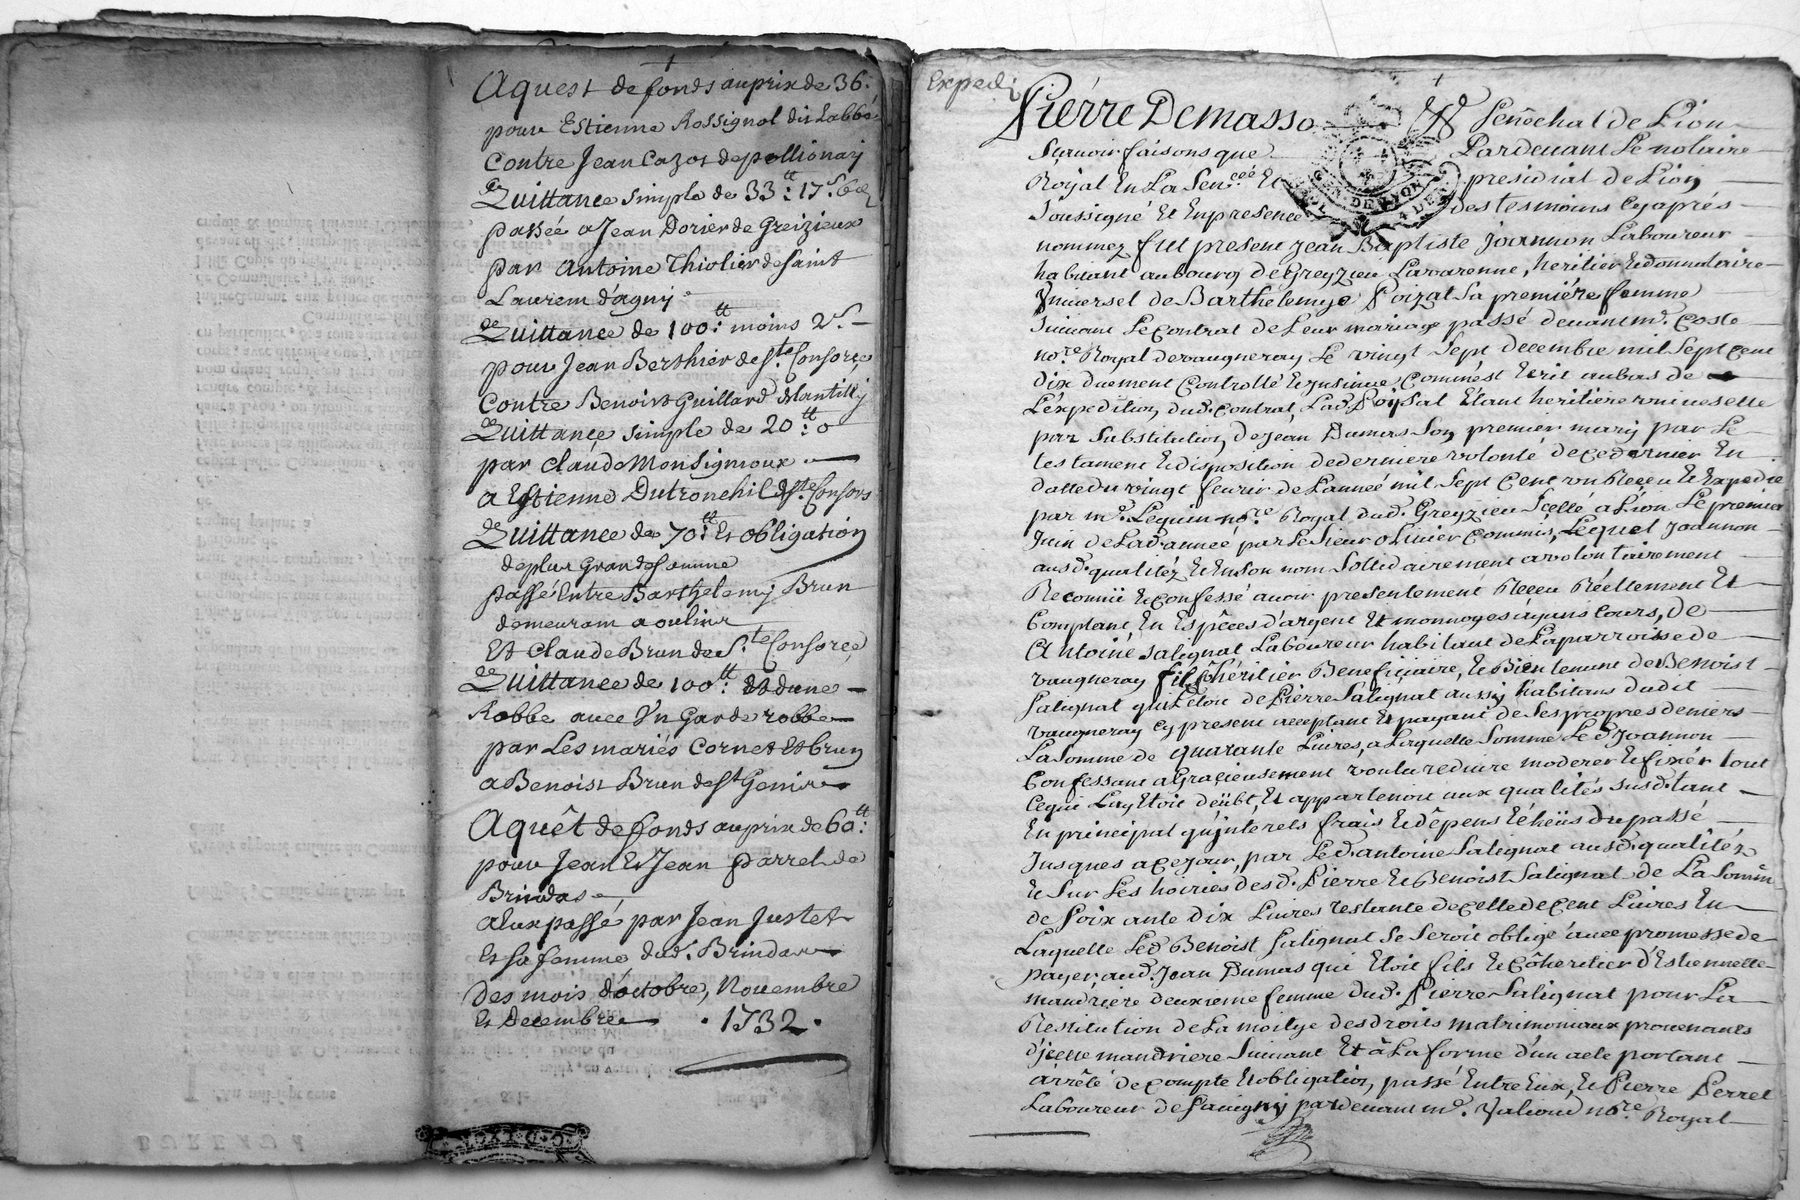 Aquest de fonds au prix de 36.
pour Estienne Rossignol dit Labbé
Contre Jean Cazot de pollionay
Quittance simple de 33tt: 17s 6d
passée a Jean Dorier de Greizieux
par Antoine Thiolier de saint
Laurent d'agny
Quittance de 100tt: moins 2s
pour Jean Berthier de Ste Consorce
Contre Benoist Guillard de Lantilly
Quittance simple de 20tt: 0
par Claude Monsignioux
a Estienne Dutronchil de Ste Consors
Quittance de 70tt: Et obligation
de plus Grande somme
passé Entre Barthelemy Brun
demeurant a oulins
Et Claude Brun de Ste Consorce
Quittance de 100tt: Et dune
Robbe avec Un Garderobbe
par Les mariés Cornet Et brun
a Benoist Brun de St Genis
Aquêt de fonds au prix de 60tt:
pour Jean Et Jean parret de
Brindas
a Eux passé par Jean Justet
Et sa femme dud. Brindas
Des mois d'octobre, Novembre
Et Decembre . 1732 .
BUREAU
Expedi
Pierre Demasso Senéchal de Lion
Scavoir faisons que Pardevant Le notaire
Royal En La Sen.ceé Et presidial de Lion
Soussigné Et En presence des tesmoins Cy aprés
GEN. DE LYON
nommez fut present Jean Baptiste Joannon Laboureur
habitant au bourg de Greyzieu Lavarenne, heritier Et donnataire
Universel de Barthelemye Poizat Sa premiére femme
Suivant Le Contrat de Leur mariage passé devant me. Coste
nore Royal de vaugneray Le vingt Sept decembre mil Sept Cent
dix duement Controllé Et Insinué Comm'est Ecrit au bas de
L'expedition dud. Contrat, Lad. Poizat Etant heritiere universelle
par Substitution de Jean Dumas Son premier mary par Le
testament Et disposition de derniere volonté de Ce dernier En
datte du vingt fevrir de L'année mil Sept Cent un Receu Et Expedié
par me. Lequin nore. Royal dud. Greyzieu Scellé a Lion Le premier
Juin de Lad. année par Le Sieur olivier Commis, Lequel Joannon
ausd. qualitéz Et En son nom Sollidairement a volontairement
Reconnü Et Confessé avoir presentement Receu Réellement Et
Comptant En Espêces d'argent Et monnoyes ayant Cours, de
Antoine Salignat Laboureur habitant de La parroisse de
vaugneray fils Et hêritier Beneficiaire, Et Bien tenant de Benoist
Salignat qui L'etoit de Pierre Salignat aussy habitans dudit
vaugneray Cy present acceptant Et payant de Ses propres deniers
La Somme de quarante Livres, a Laquelle Somme Led. Joannon
Confessant a Gracieusement voulu reduire moderer Et fixér tout
Ce qui Luy Etoit deübt, Et appartenoit aux qualités susd. tant
En principal qu'interets frais Et dêpens Echeüs du passé
Jusques a Ce jour, par Led. Antoine Salignat ausd. qualitéz
Et Sur Les hoiries desd. Pierre Et Benoist Salignat de La Somm
de Soixante dix Livres restante de Celle de Cent Livres En
Laquelle Led. Benoist Salignat Se Seroit obligé avec promesse de
payer aud. Jean Dumas qui Etoit fils Et Côheritier d'Estiennette
maudriere deuxieme femme dud. Pierre Salignat pour La
Restitution de La moitye des droits matrimoniaux provenants
d'jcelle mandriere Suivant Et à La forme d'un acte portant
arrêté de Compte Et obligation, passé Entre Eux, Et Pierre Perret
Laboureur de Savigny pardevant me. Valioud nore Royal